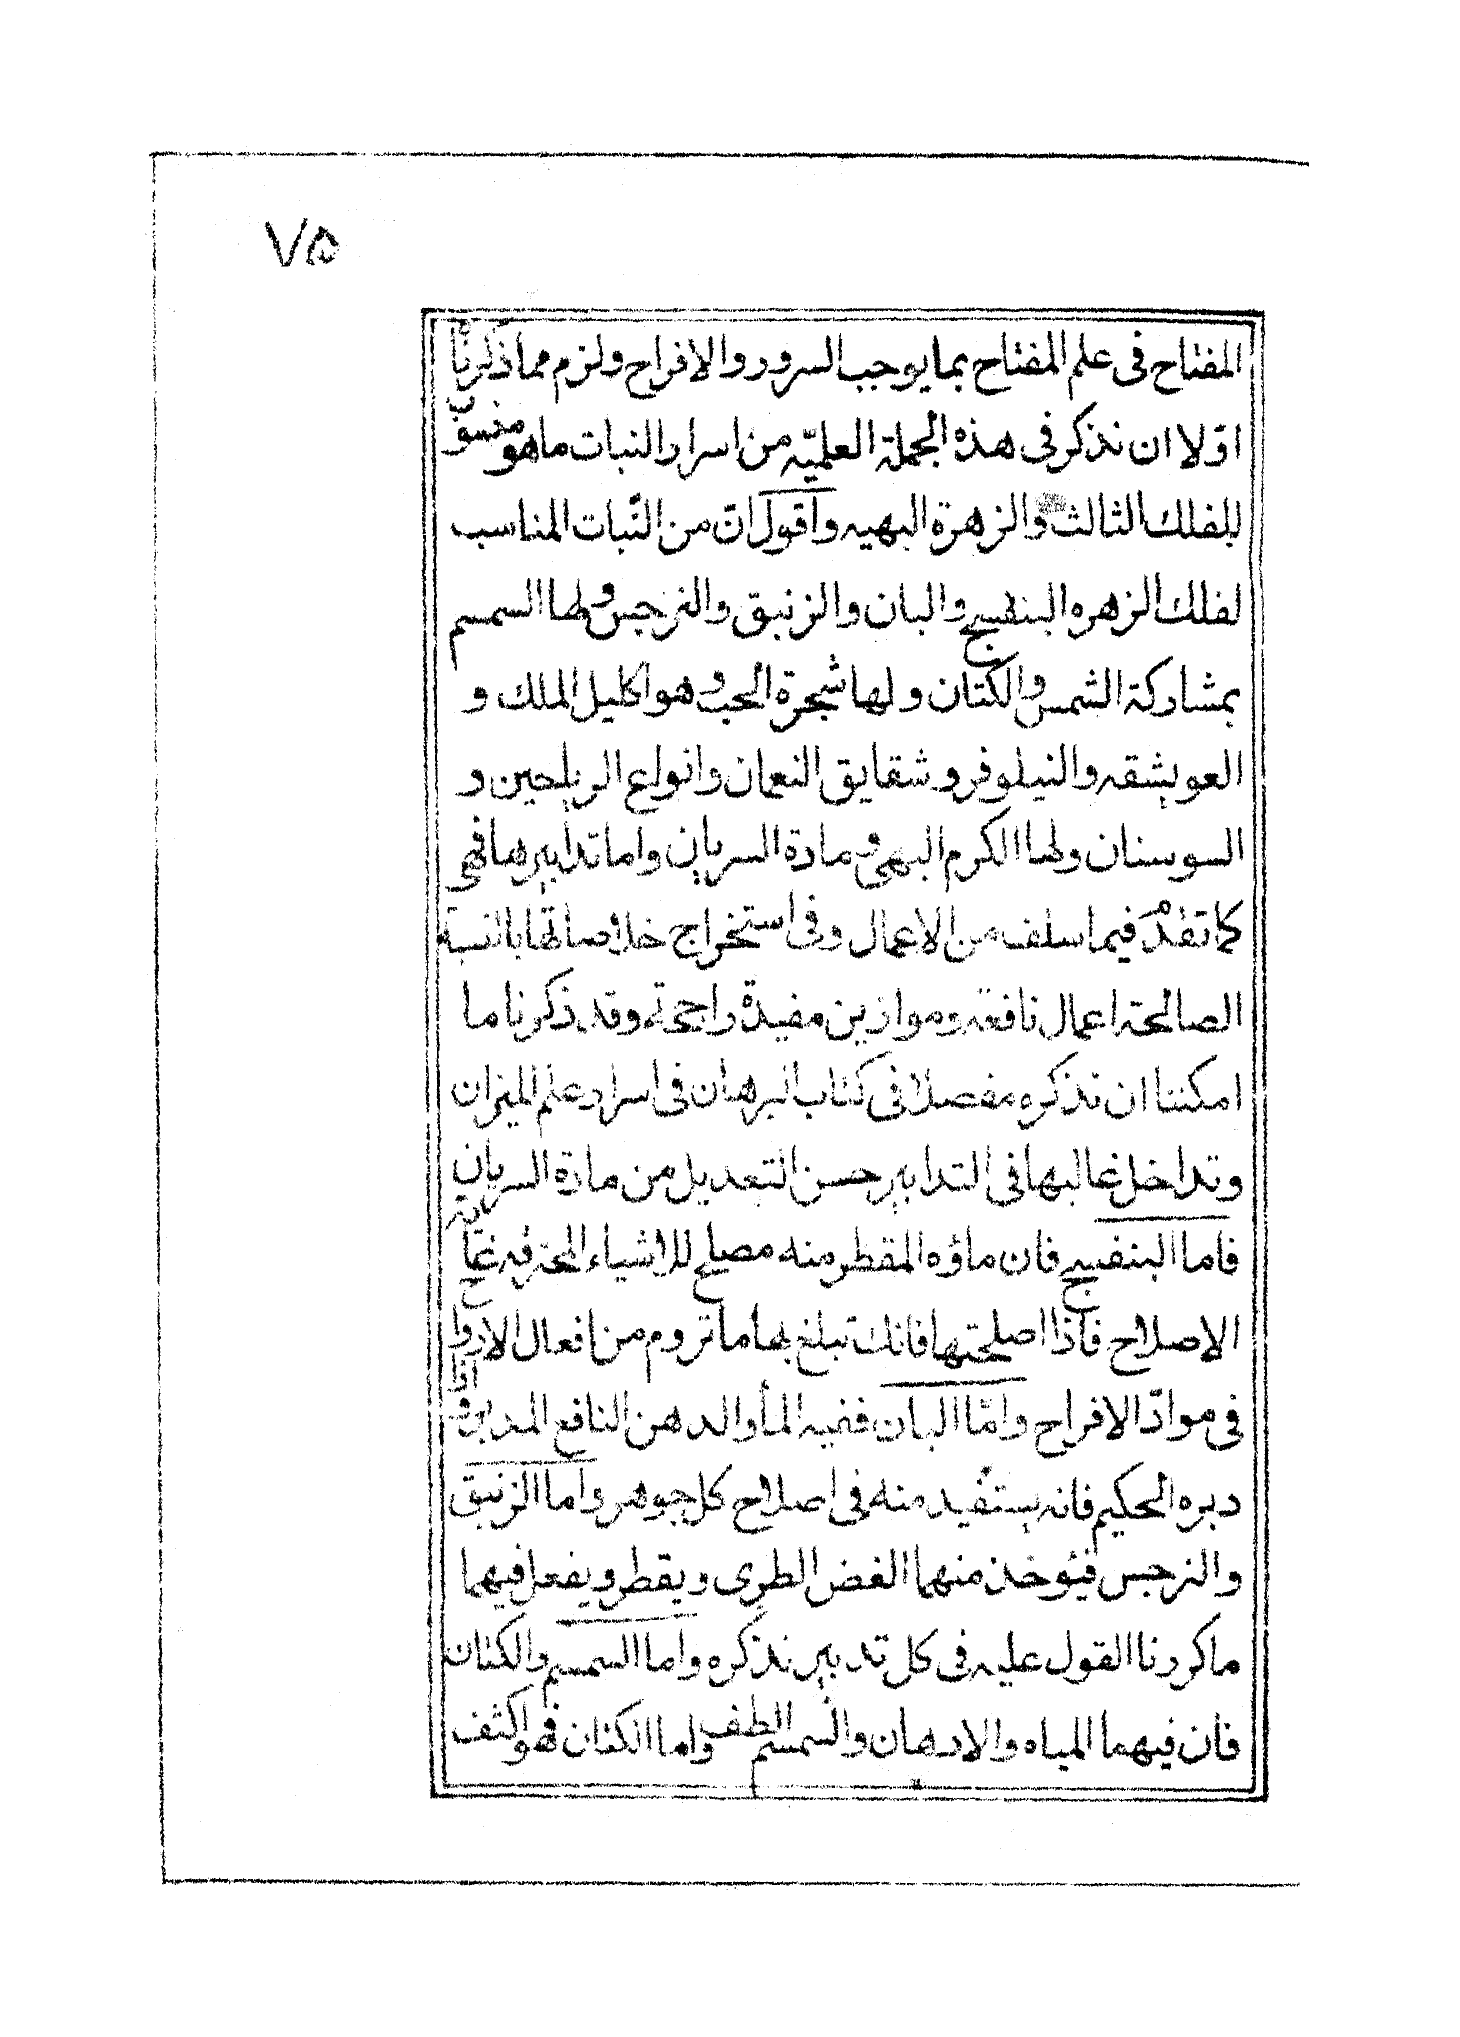 ٧۵
المفتاح فى علم المفتاح بما يوجب السرور والافراح ولزم مما ذكرنا
اوّلا ان نذكر فى هذه الجملة العلميّه من اسرار النبات ماهو منسوب
للفلك الثالث والزهرة البهيه واقول انّ من النّبات المناسب
لفلك الزهره البنفسج والبان والزنبق والنرجس ولها السمسم
بمشاركة الشمس والكتان ولها شجرة الحب وهو اكليل الملك و
العوبشقه والنيلوفر وشقايق النعمان وانواع الرياحين و
السوسنان ولها الكرم البهى ومادة السريان واما تدابيرها فهى
كما تقدّم فيما سلف من الاعمال وفى استخراج خلاصاتها بالنسبة
الصالحة اعمال نافعه وموازين مفيدة راجحة وقد ذكرنا ما
امكننا ان نذكره مفصلا فى كتاب البرهان فى اسرار علم الميزان
وتداخل غالبها فى التدابير حسن التعديل من مادة السريان
فاما البنفسج فان ماؤه المقطر منه مصلح للاشياء المحترقه غاية
الاصلاح فاذا اصلحتها فانك تبلغ بها ما تروم من افعال الارواح
فى موادّ الافراح وامّا البان ففيه الماء والدهن النافع المدبر واذا
دبره الحكيم فانه يستفيد منه فى اصلاح كل جوهر واما الزنبق
والنرجس فيئوخذ منهما الغض الطرى ويقطر ويفعل فيهما
ما كررنا القول عليه فى كل تدبير نذكره واما السمسم والكتان
فان فيهما المياه والادهان والسمسم الطف واما الكتان فهو اكثف